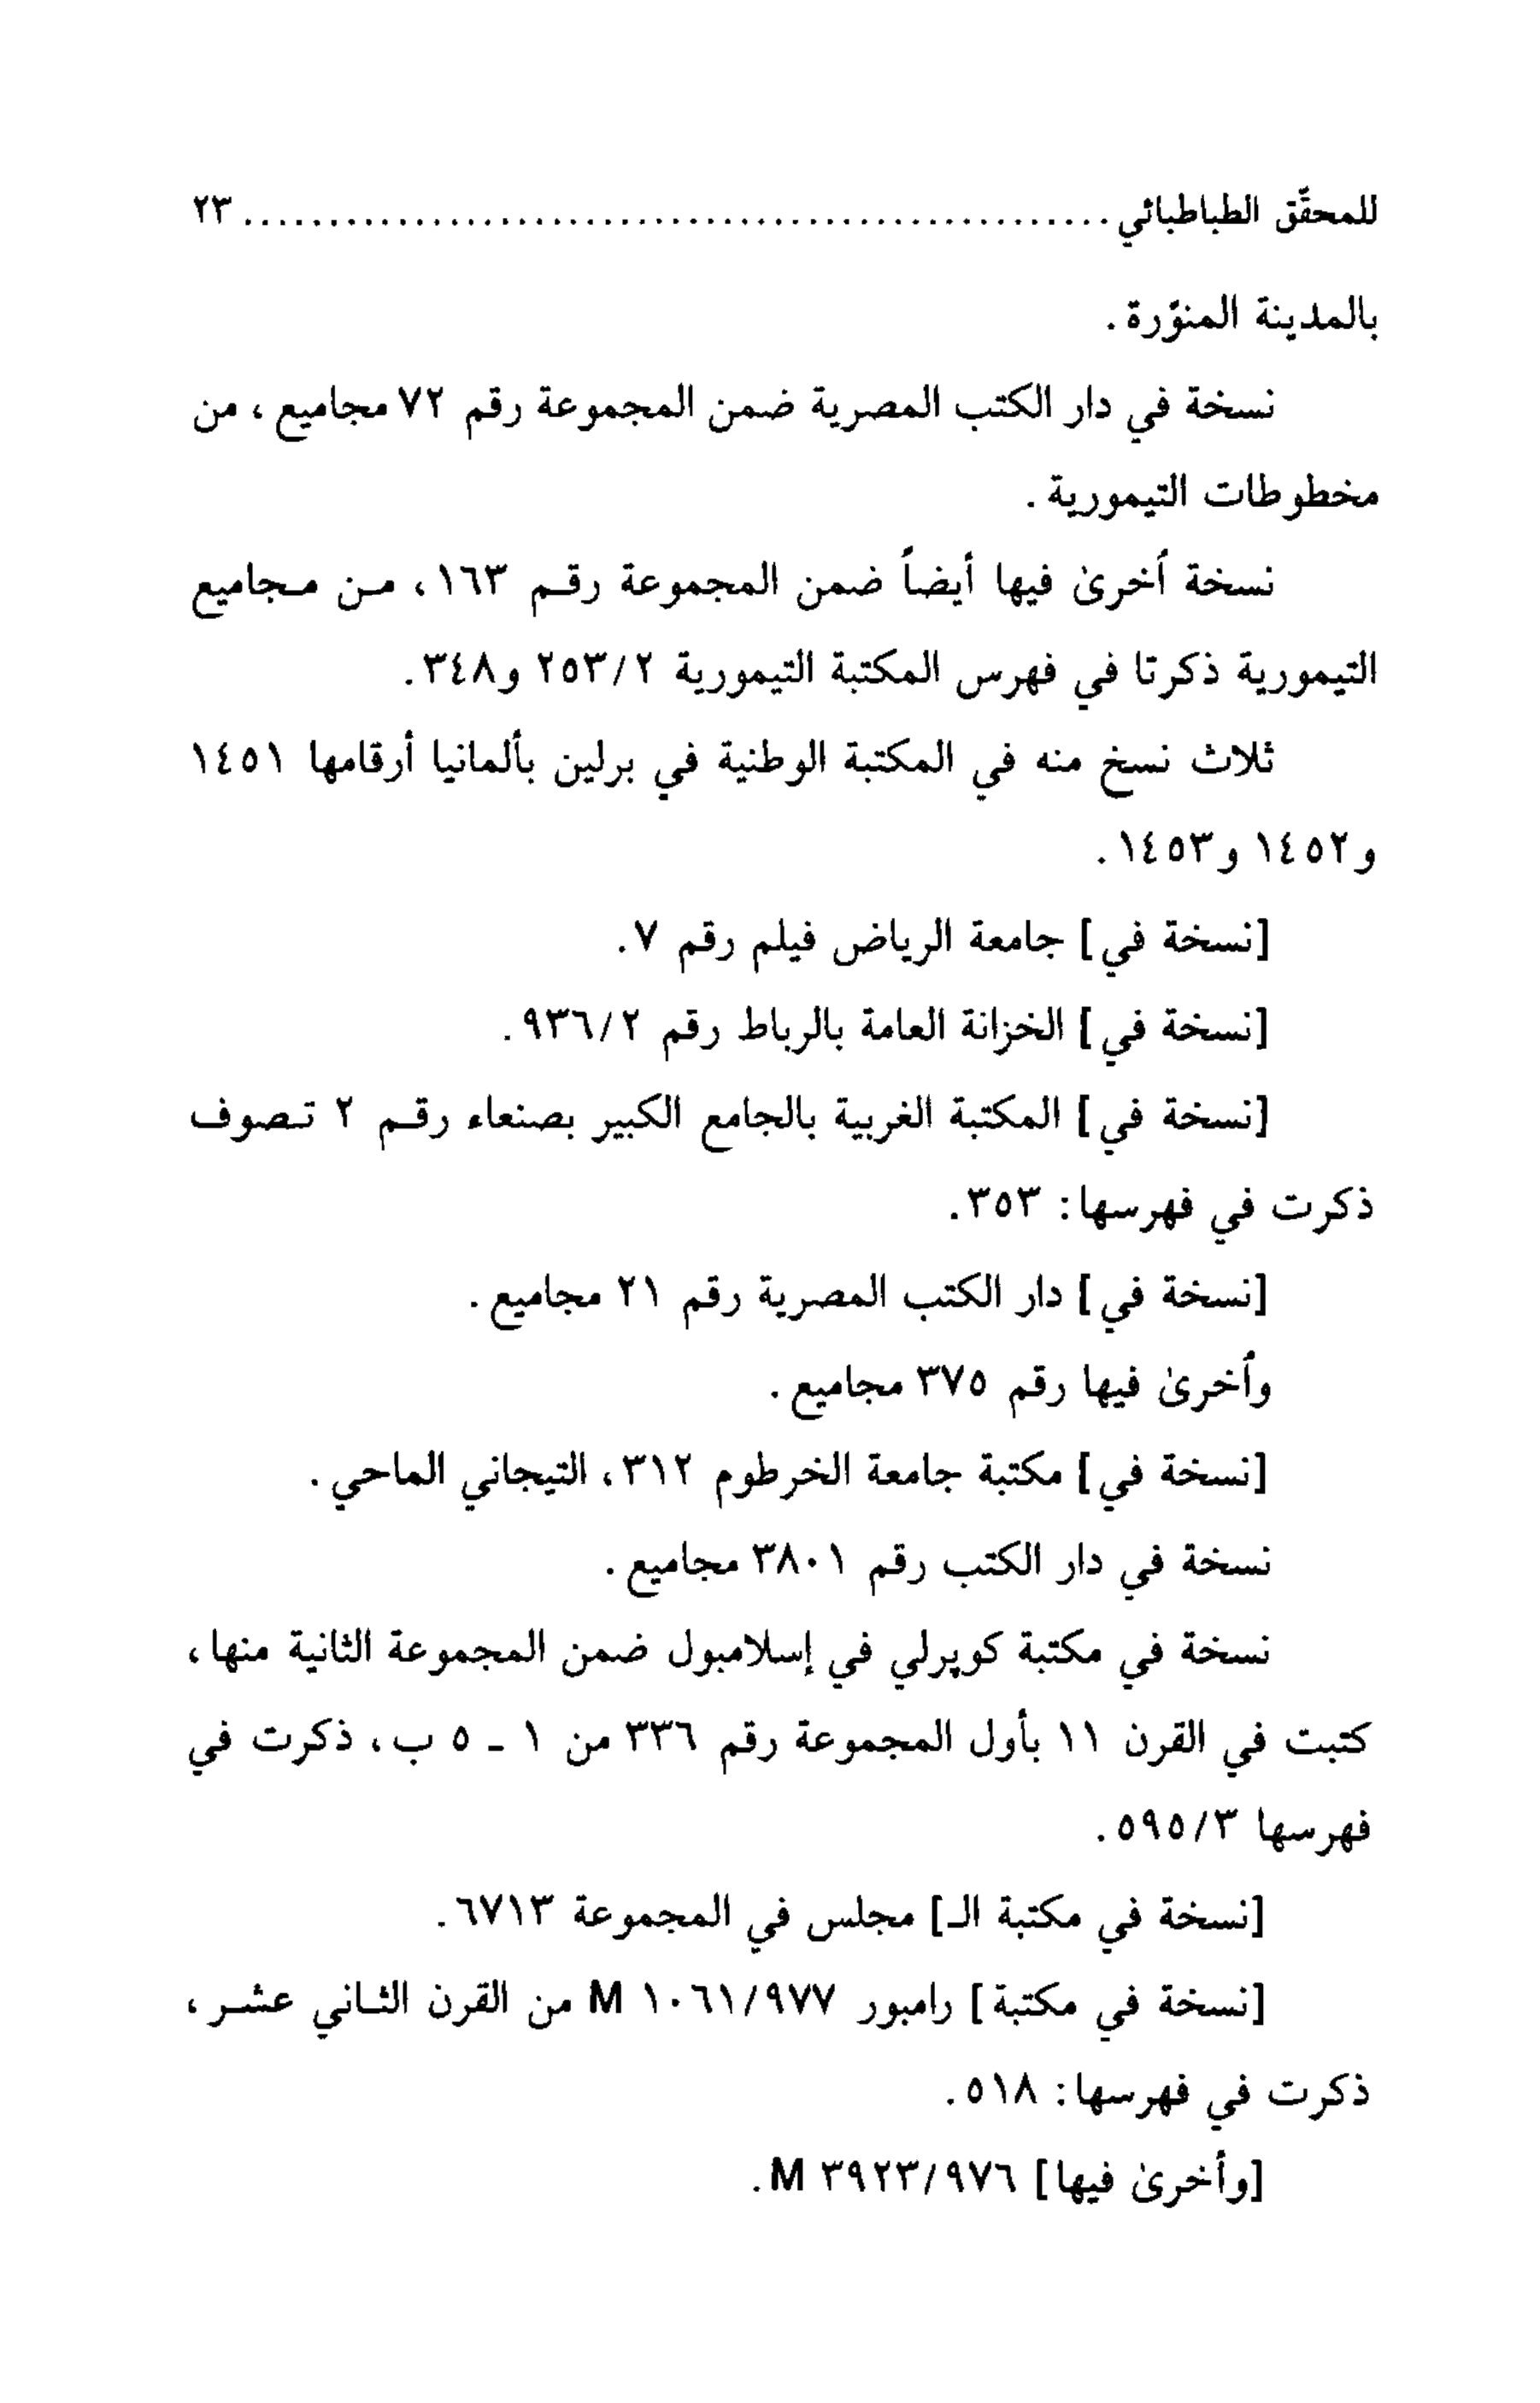 للمحقّق الطباطبائي .................................................... ٢٣
بالمدينة المنوّرة .
نسخة في دار الكتب المصرية ضمن المجموعة رقم ٧٢ مجاميع ، من
مخطوطات التيمورية .
نسخة اُخرىٰ فيها أيضاً ضمن المجموعة رقـم ١٦٣ ، مـن مـجاميع
التيمورية ذكرتا في فهرس المكتبة التيمورية ٢/٢٥٣ و٣٤٨.
ثلاث نسخ منه في المكتبة الوطنية في برلين بألمانيا أرقامها ١٤٥١
و١٤٥٢ و١٤٥٣ .
[نسخة في] جامعة الرياض فيلم رقم ٧.
[نسخة في] الخزانة العامة بالرباط رقم ٢/٩٣٦.
[نسخة في] المكتبة الغربية بالجامع الكبير بصنعاء رقـم ٢ تـصوف
ذكرت في فهرسها: ٣٥٣.
[نسخة في] دار الكتب المصرية رقم ٢١ مجاميع .
واُخرىٰ فيها رقم ٣٧٥ مجاميع .
[نسخة في] مكتبة جامعة الخرطوم ٣١٢، التيجاني الماحي .
نسخة في دار الكتب رقم ٣٨٠١ مجاميع .
نسخة في مكتبة كوپرلي في إسلامبول ضمن المجموعة الثانية منها ،
كتبت في القرن ١١ بأول المجموعة رقم ٣٣٦ من ١ ـ ٥ ب ، ذكرت في
فهرسها ٣/٥٩٥ .
[نسخة في مكتبة الـ] مجلس في المجموعة ٦٧١٣.
[نسخة في مكتبة] رامبور ١٠٦١/٩٧٧ M من القرن الثـاني عشـر ،
ذكرت في فهرسها: ٥١٨.
[وأخرىٰ فيها] ٣٩٢٣/٩٧٦ M.